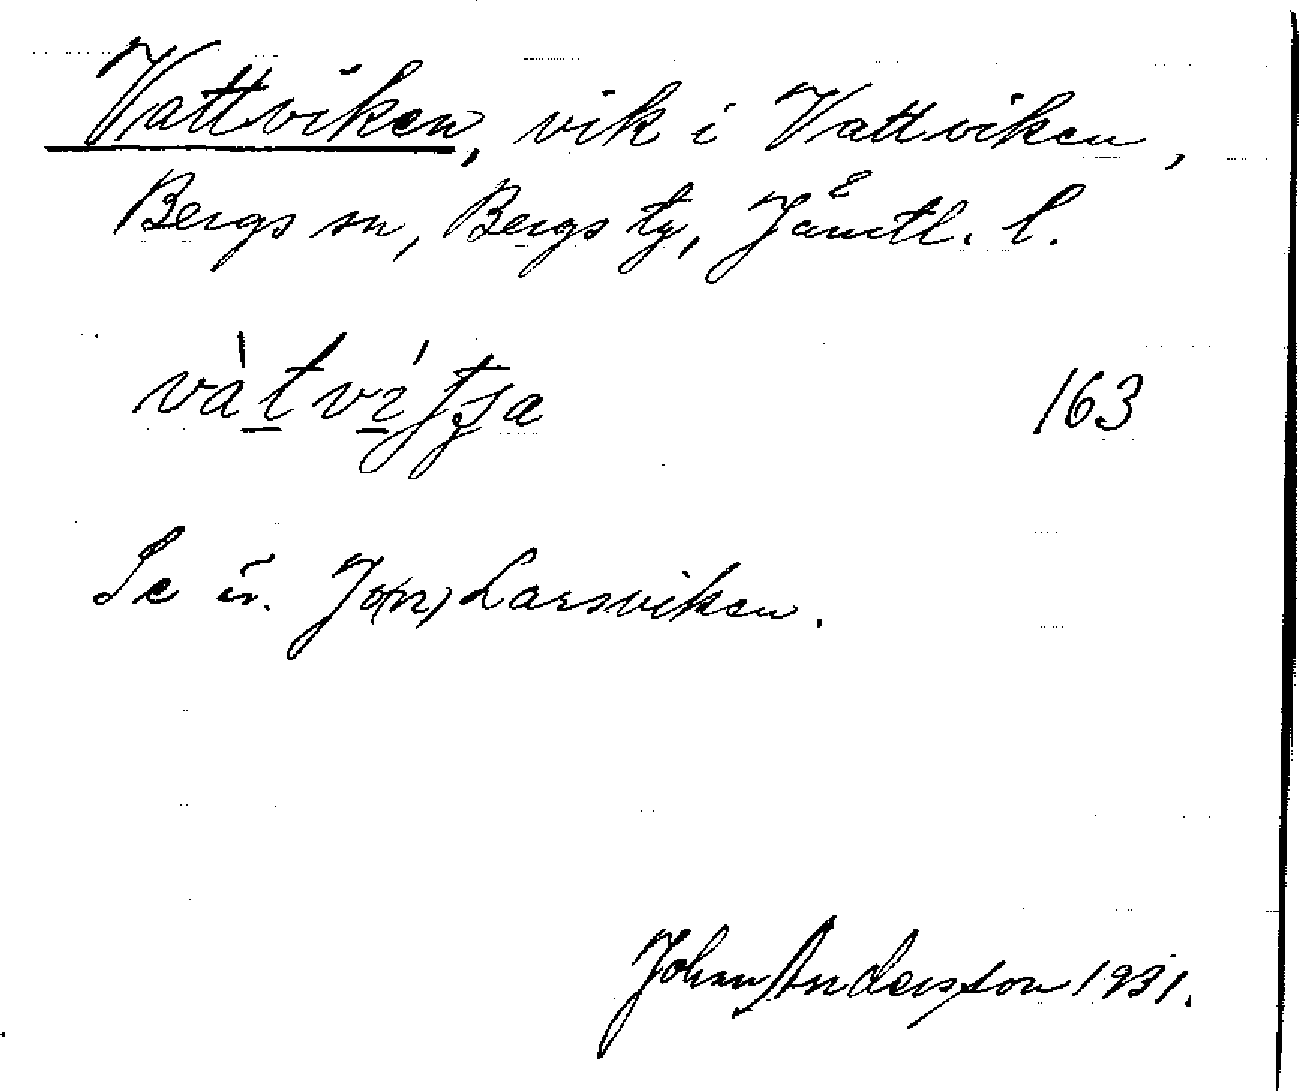 Vattviken, vik i Vattviken,
Bergs sn, Bergs tg, Jämtl. l.
163
Se ä. Jo(n) Larsviken.
Johan Andersson 1931.